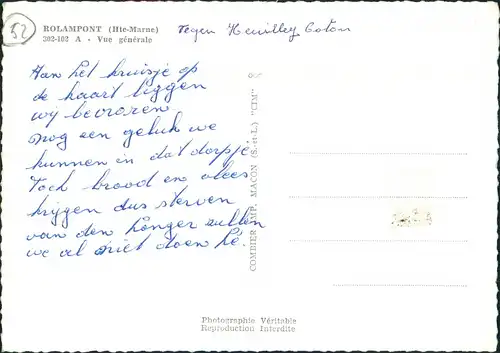 52
ROLAMPONT (Hte-Marne)
302-102 A - Vue générale
Tegen Heuilley Coton
Aan het kruisje op
de kaart liggen
wij bevroren
nog een geluk we
kunnen in dat dorpje
Toch brood en vlees
krijgen dus sterven
van den honger zullen
we al niet doen hé.
COMBIER IMP. MACON (S.-et-L.) "CIM"
Photographie Véritable
Reproduction Interdite